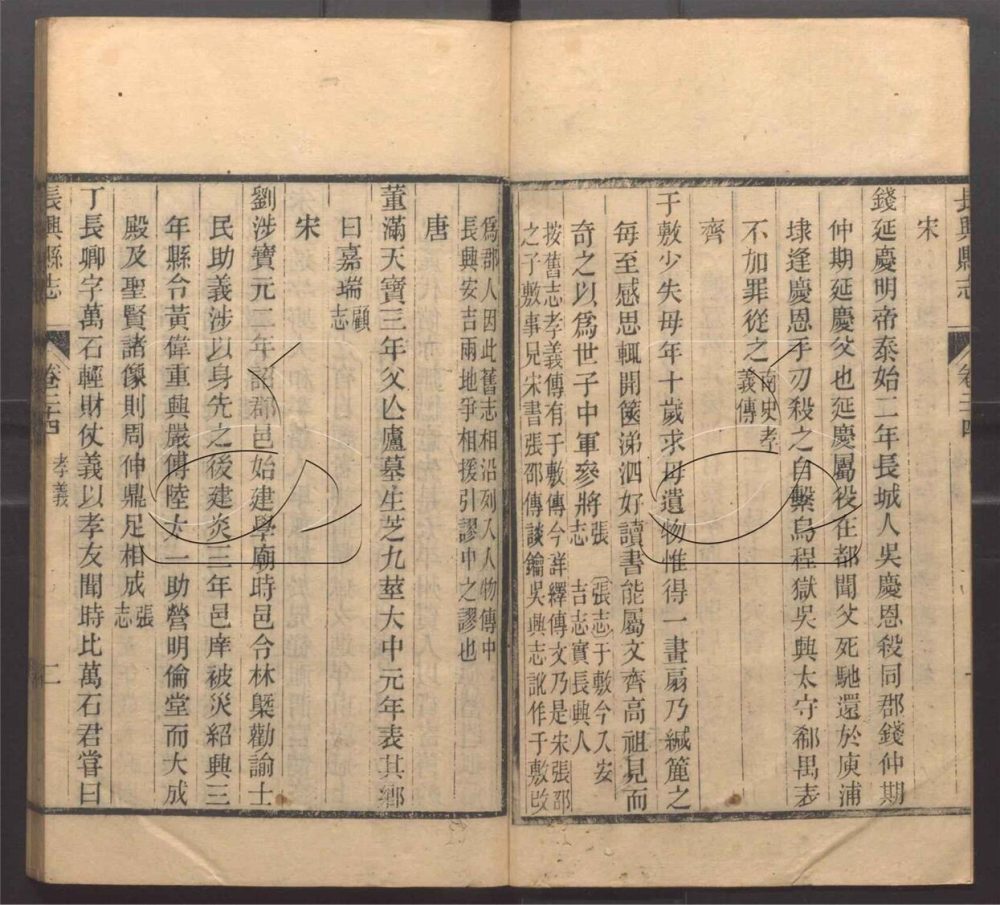 長興縣志
卷二十四
宋
錢延慶明帝泰始二年長城人吳慶恩殺同郡錢仲期
仲期延慶父也延慶屬役在都聞父死馳還於庾浦
埭逢慶恩手刃殺之自繫烏程獄吳興太守郗禺表
不加罪從之南史孝
義傳
齊
于敷少失母年十歲求母遺物惟得一畫扇乃緘篋之
每至感思輒開篋涕泗好讀書能屬文齊高祖見而
奇之以為世子中軍參將張
志
張志于敷今入安
吉志實長興人
按舊志孝義傳有于敷傳今詳繹傳文乃是宋張邵
之子敷事見宋書張邵傳談鑰吳興志訛作于敷改
為郡人因此舊志相沿列入人物傳中
長興安吉兩地爭相援引謬中之謬也
唐
董滿天寶三年父亾廬墓生芝九莖大中元年表其鄉
曰嘉瑞顧
志
宋
劉涉寶元二年詔郡邑始建學廟時邑令林㮣勸諭士
民助義涉以身先之後建炎三年邑庠被災紹興三
年縣令黃偉重興嚴傅陸大一助營明倫堂而大成
殿及聖賢諸像則周仲鼎足相成張
志
丁長卿字萬石輕財仗義以孝友聞時比萬石君嘗曰
長興縣志
卷二十四
孝義
二